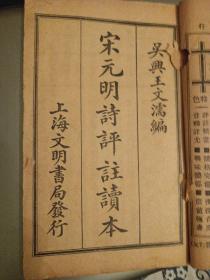 吳興王文濡編
宋元明詩評註讀本
上海文明書局發行